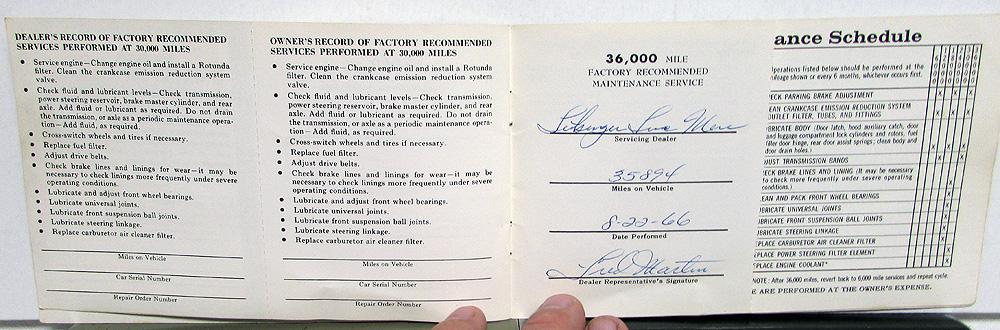 DEALER'S RECORD OF FACTORY RECOMMENDED
SERVICES PERFORMED AT 30,000 MILES
• Service engine—Change engine oil and install a Rotunda
filter. Clean the crankcase emission reduction system
valve.
• Check fluid and lubricant levels—Check transmission,
power steering reservoir, brake master cylinder, and rear
axle. Add fluid or lubricant as required. Do not drain
the transmission, or axle as a periodic maintenance opera-
tion—Add fluid, as required.
• Cross-switch wheels and tires if necessary.
• Replace fuel filter.
• Adjust drive belts.
• Check brake lines and linings for wear—it may be
necessary to check linings more frequently under severe
operating conditions.
• Lubricate and adjust front wheel bearings.
• Lubricate universal joints.
• Lubricate front suspension ball joints.
• Lubricate steering linkage.
• Replace carburetor air cleaner filter.
Miles on Vehicle
Car Serial Number
Repair Order Number
OWNER'S RECORD OF FACTORY RECOMMENDED
SERVICES PERFORMED AT 30,000 MILES
• Service engine—Change engine oil and install a Rotunda
filter. Clean the crankcase emission reduction system
valve.
• Check fluid and lubricant levels—Check transmission,
power steering reservoir, brake master cylinder, and rear
axle. Add fluid or lubricant as required. Do not drain
the transmission, or axle as a periodic maintenance opera-
tion—Add fluid, as required.
• Cross-switch wheels and tires if necessary.
• Replace fuel filter.
• Adjust drive belts.
• Check brake lines and linings for wear—it may be
necessary to check linings more frequently under severe
operating conditions.
• Lubricate and adjust front wheel bearings.
• Lubricate universal joints.
• Lubricate front suspension ball joints.
• Lubricate steering linkage.
• Replace carburetor air cleaner filter.
Miles on Vehicle
Car Serial Number
Repair Order Number
36,000 MILE
FACTORY RECOMMENDED
MAINTENANCE SERVICE
Servicing Dealer
35894
Miles on Vehicle
8-22-66
Date Performed
Fred Martin
Dealer Representative's Signature
ance Schedule
perations listed below should be performed at the
ileage shown or every 6 months, whichever occurs first.
ECK PARKING BRAKE ADJUSTMENT
EAN CRANKCASE EMISSION REDUCTION SYSTEM
OUTLET FILTER, TUBES, AND FITTINGS
BRICATE BODY (Door latch, hood auxiliary catch, door
and luggage compartment lock cylinders and rotors, fuel
filler door hinge, rear door assist springs; clean body and
door drain holes.)
DJUST TRANSMISSION BANDS
ECK BRAKE LINES AND LINING (It may be necessary
to check more frequently under severe operating
conditions.)
EAN AND PACK FRONT WHEEL BEARINGS
UBRICATE UNIVERSAL JOINTS
UBRICATE FRONT SUSPENSION BALL JOINTS
UBRICATE STEERING LINKAGE
PLACE CARBURETOR AIR CLEANER FILTER
EPLACE POWER STEERING FILTER ELEMENT
EPLACE ENGINE COOLANT*
NOTE: After 36,000 miles, revert back to 6,000 mile services and repeat cycle.
E ARE PERFORMED AT THE OWNER'S EXPENSE.